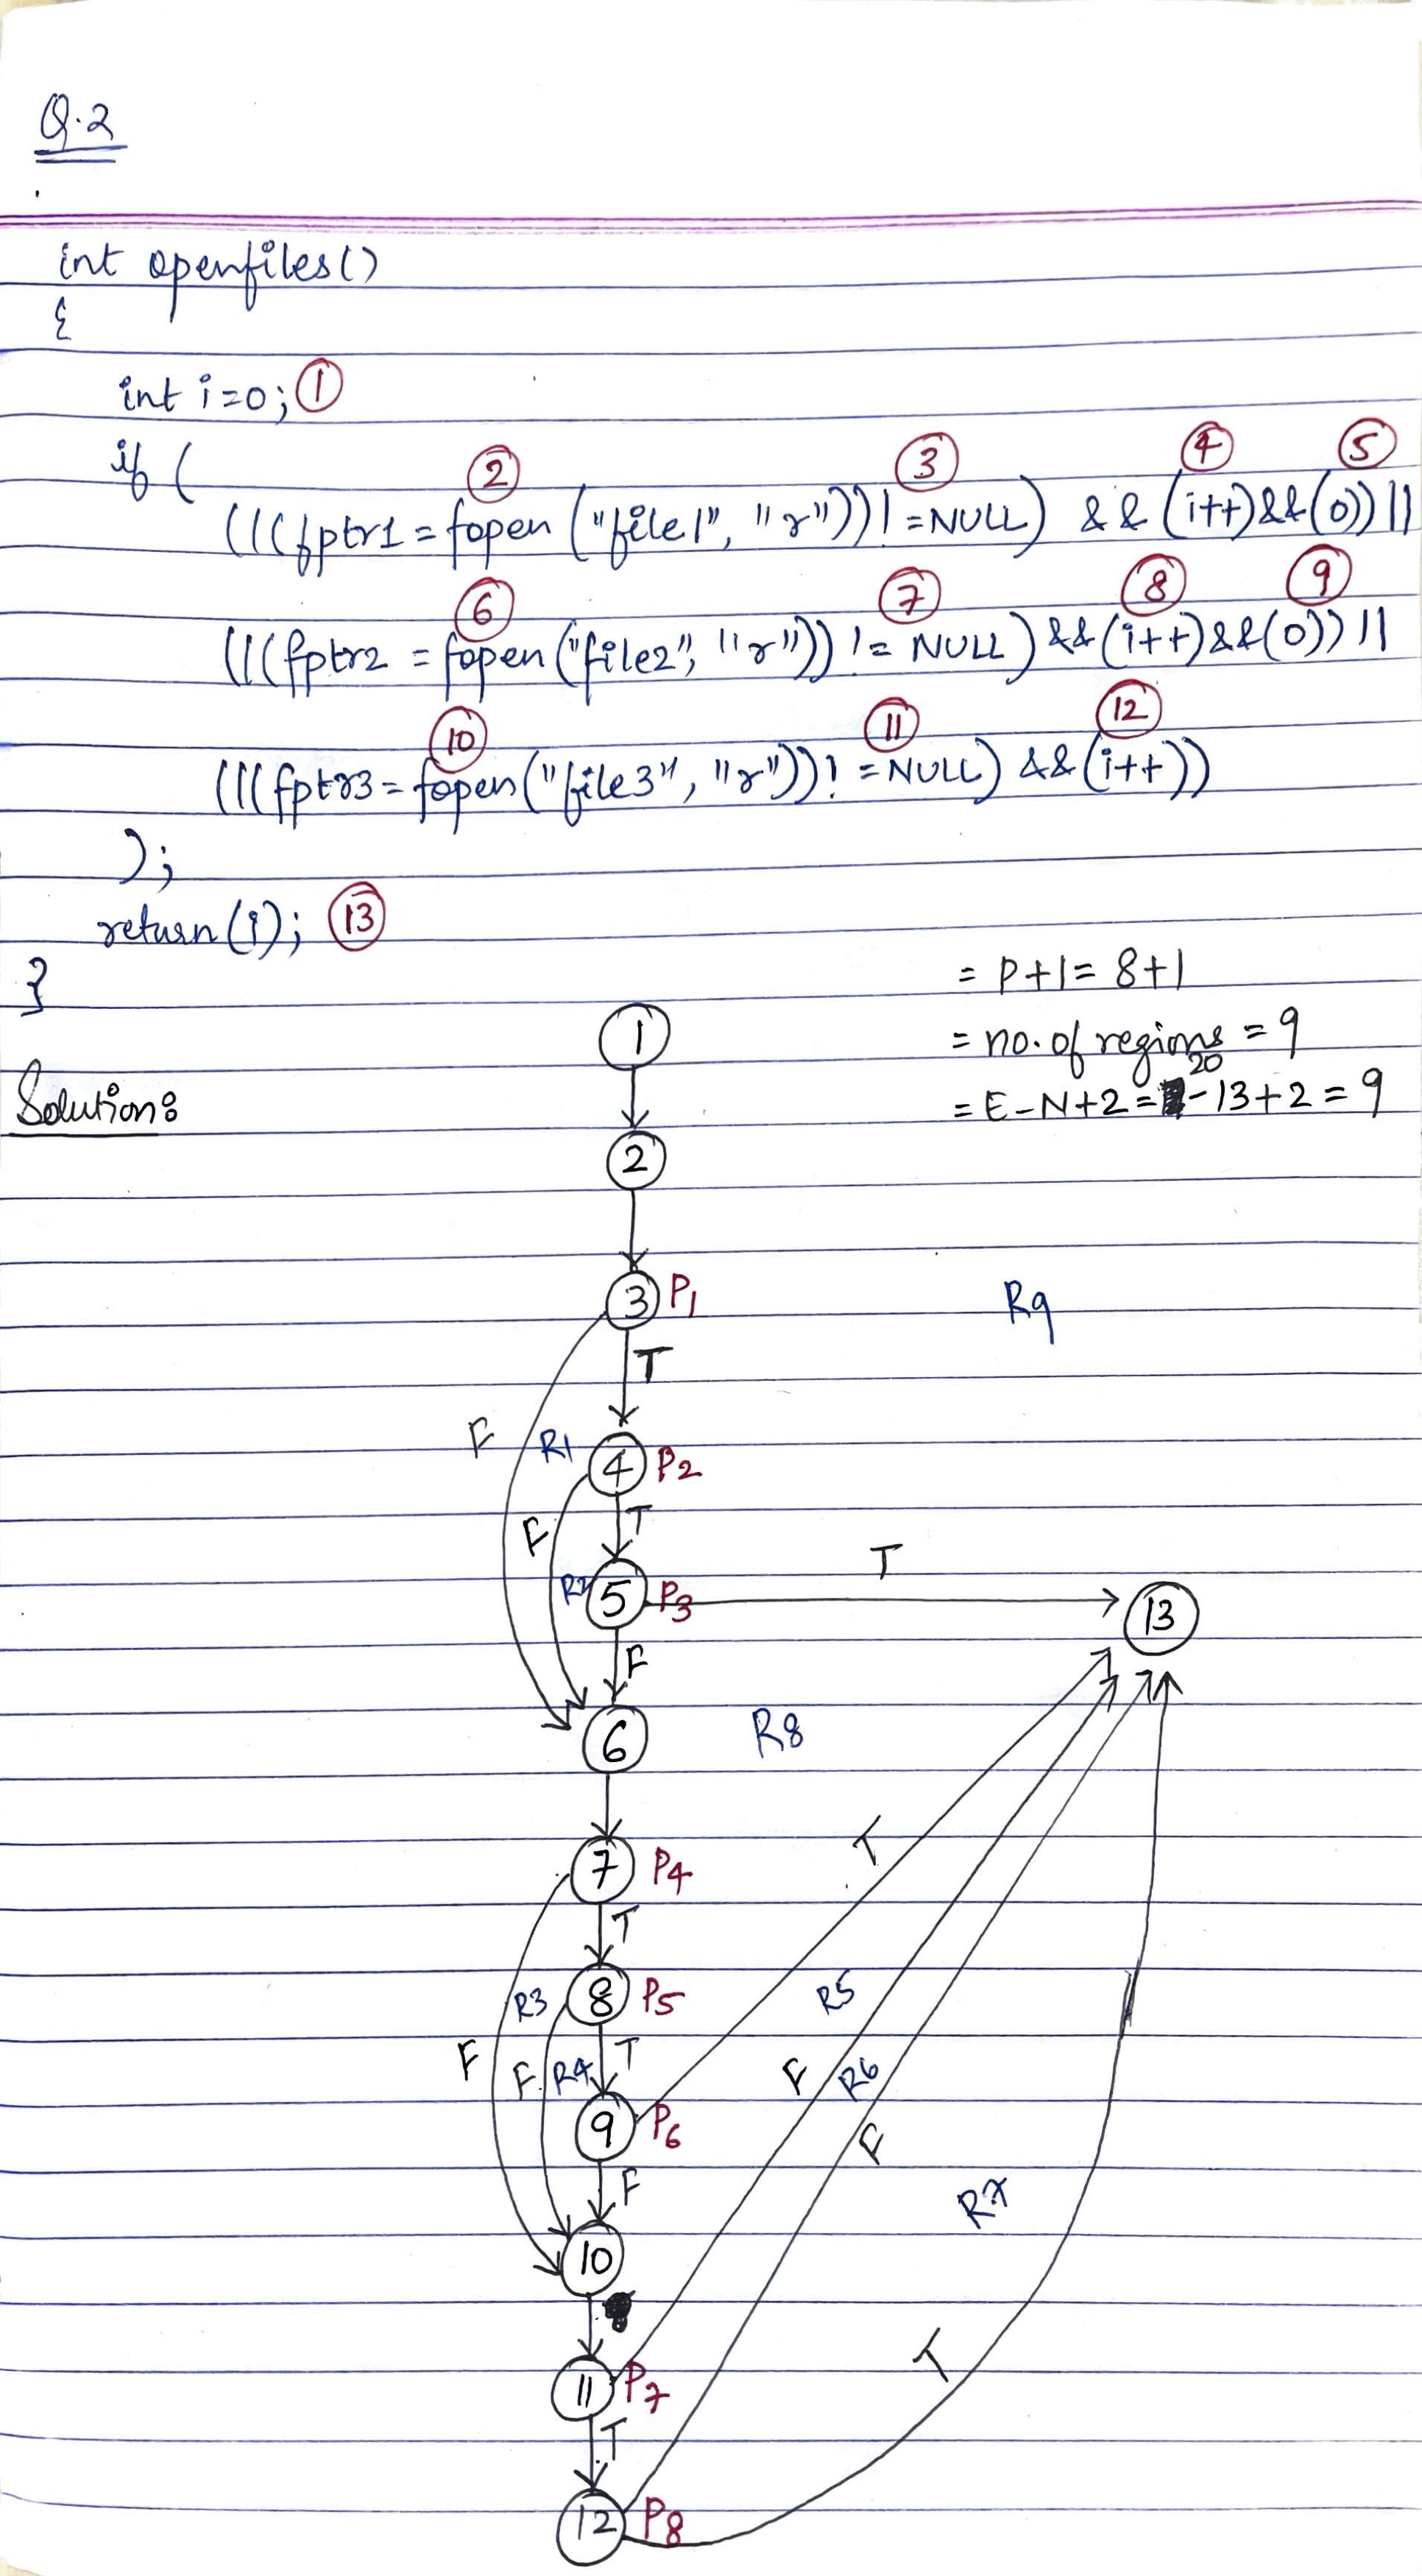 Q.2
int openfiles()
{
int i=0; ①
if (
② ③ ④ ⑤
(((fptr1 = fopen ("file1", "r"))! =NULL) && (i++)&&(0)) ||
⑥ ⑦ ⑧ ⑨
(((fptr2 = fopen("file2", "r")) != NULL) &&(i++)&&(0)) ||
⑩ ⑪ ⑫
(((fptr3 = fopen("file3", "r"))! =NULL) &&(i++))
);
return(i); ⑬
}
= P+1= 8+1
= no. of regions = 9
= E-N+2 = 20-13+2 = 9
Solution:
1
2
3 P1
R9
T
F R1 4 P2
F T
R2 5 P3 T 13
F
6 R8
T
7 P4
T
R3 8 P5 R5
F F R4 T F R6
9 P6 F
F R7
10
T
11 P7
T
12 P8